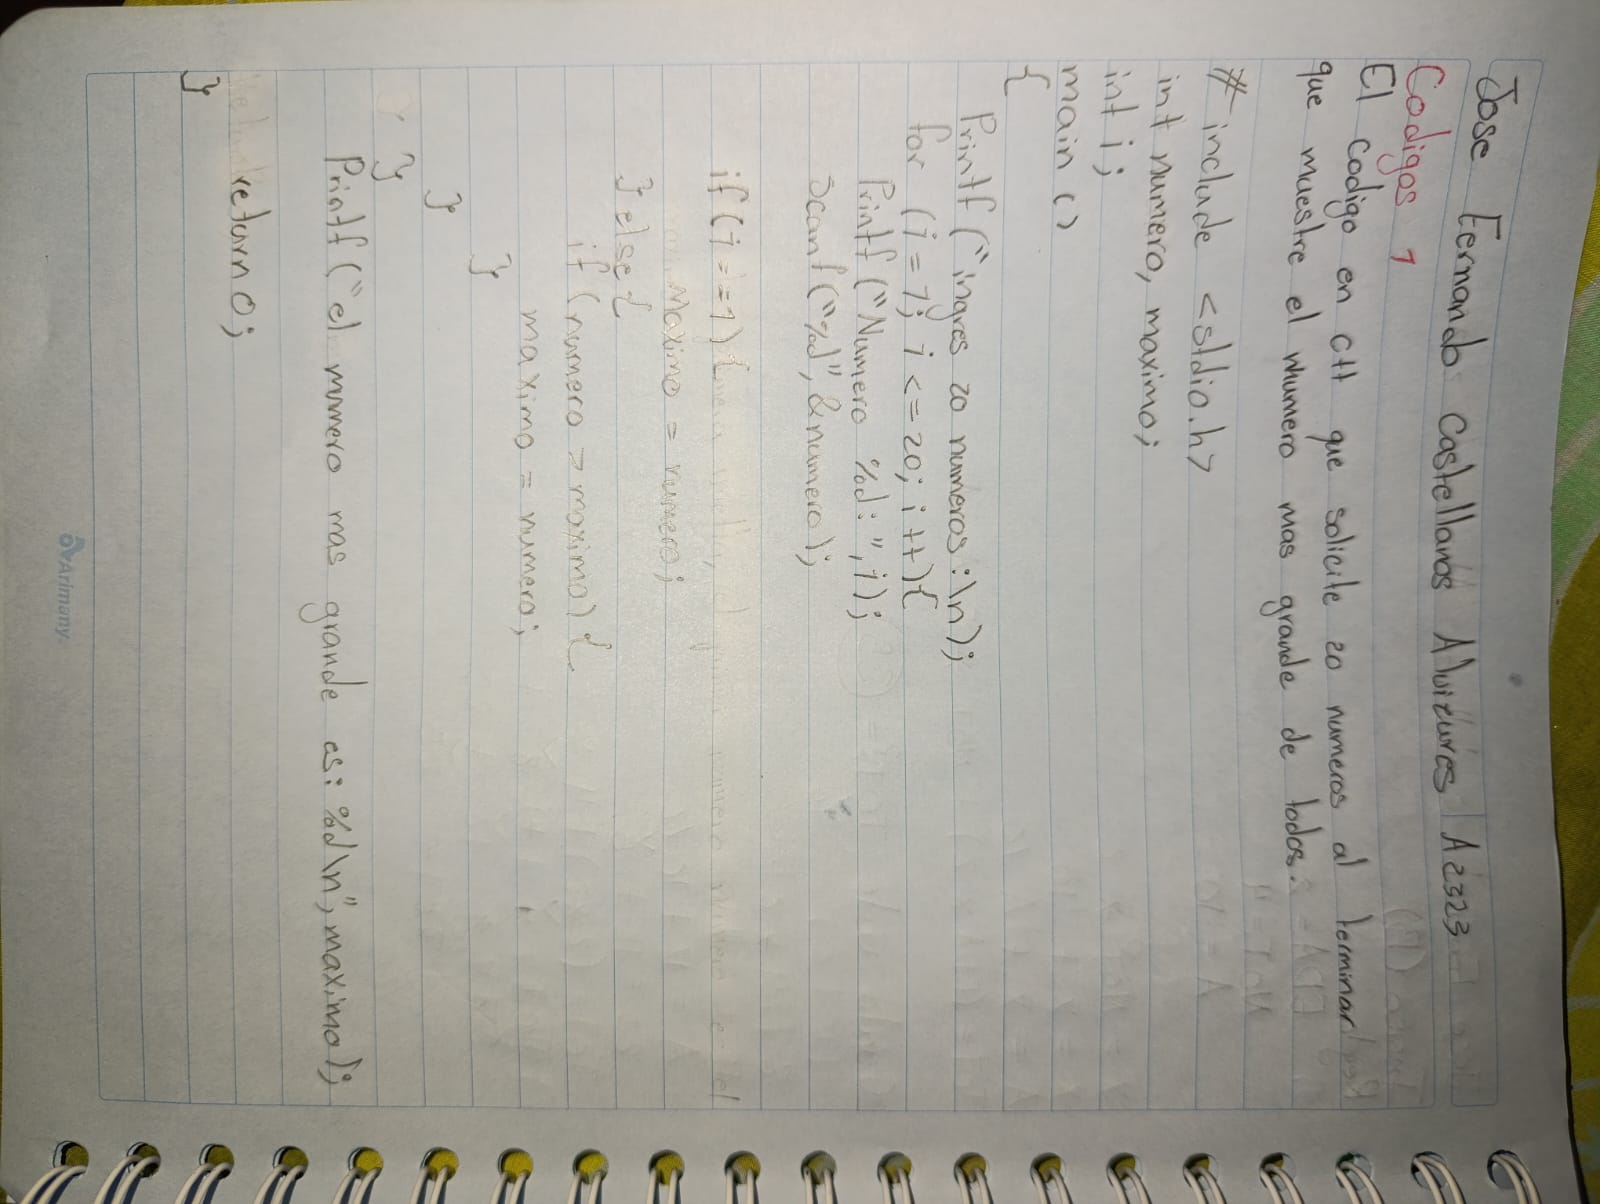 Jose Fernando Castellanos Alvizures A2323
Codigos 1
El codigo en C++ que solicite 20 numeros al terminar
que muestre el nhumero mas grande de todos.
# include <stdio.h>
int numero, maximo;
int i;
main ()
{
Printf ("ingres 20 numeros :\n);
for (i = 1; i <= 20; i ++) {
Printf ("Numero %d: ", i);
Scanf ("%d", &numero);
if (i == 1) {
Maximo = numero;
} else {
if (numero > maximo) {
maximo = numero;
}
}
}
Printf ("el numero mas grande es: %d \n", maximo);
return 0;
}
Arimany